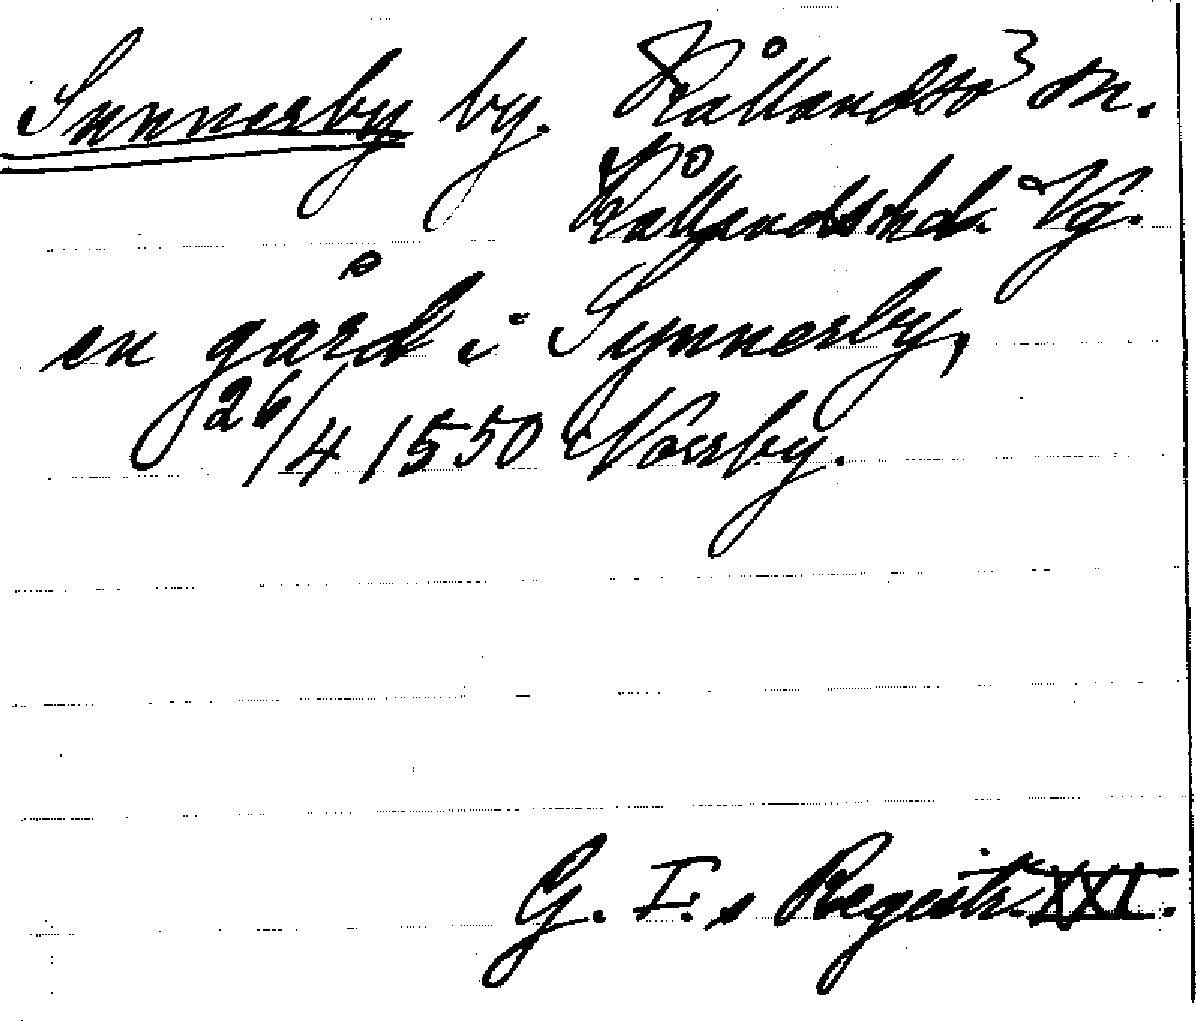 Sunnerby by. Kållandsö sn.
Kållandshd. Vg.
en gård i Synnerby,
26/4 1550 Norrby.
G. I.s Registr. XXI.